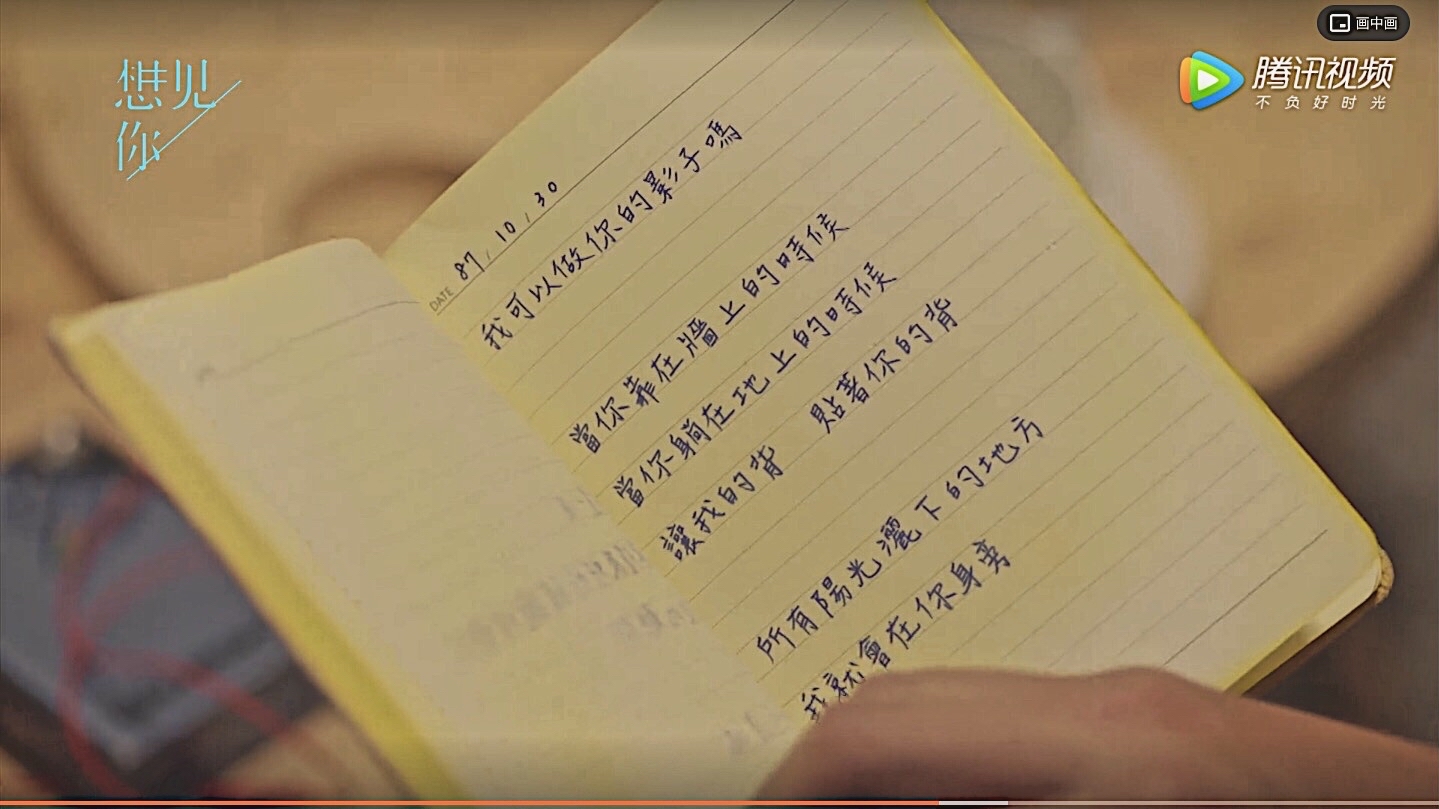 画中画
想见
你
腾讯视频
不负好时光
DATE 87/10/30
我可以做你的影子嗎
當你靠在牆上的時候
當你躺在地上的時候
讓我的背 貼著你的背
所有陽光灑下的地方
我就會在你身旁